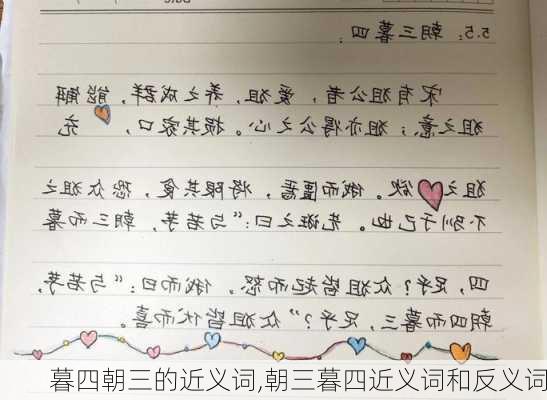 5.5：朝三暮四：
宋有狙公者，爱狙，养之成群，能解
狙之意；狙亦得公之心。损其家口，充
狙之欲。俄而匮焉，将限其食，恐众狙之
不驯于己也。先诳之曰：“与若芧，朝三而暮
四，足乎？众狙皆起而怒。俄而曰：“与若芧，
朝四而暮三，足乎？”众狙皆伏而喜。
暮四朝三的近义词,朝三暮四近义词和反义词